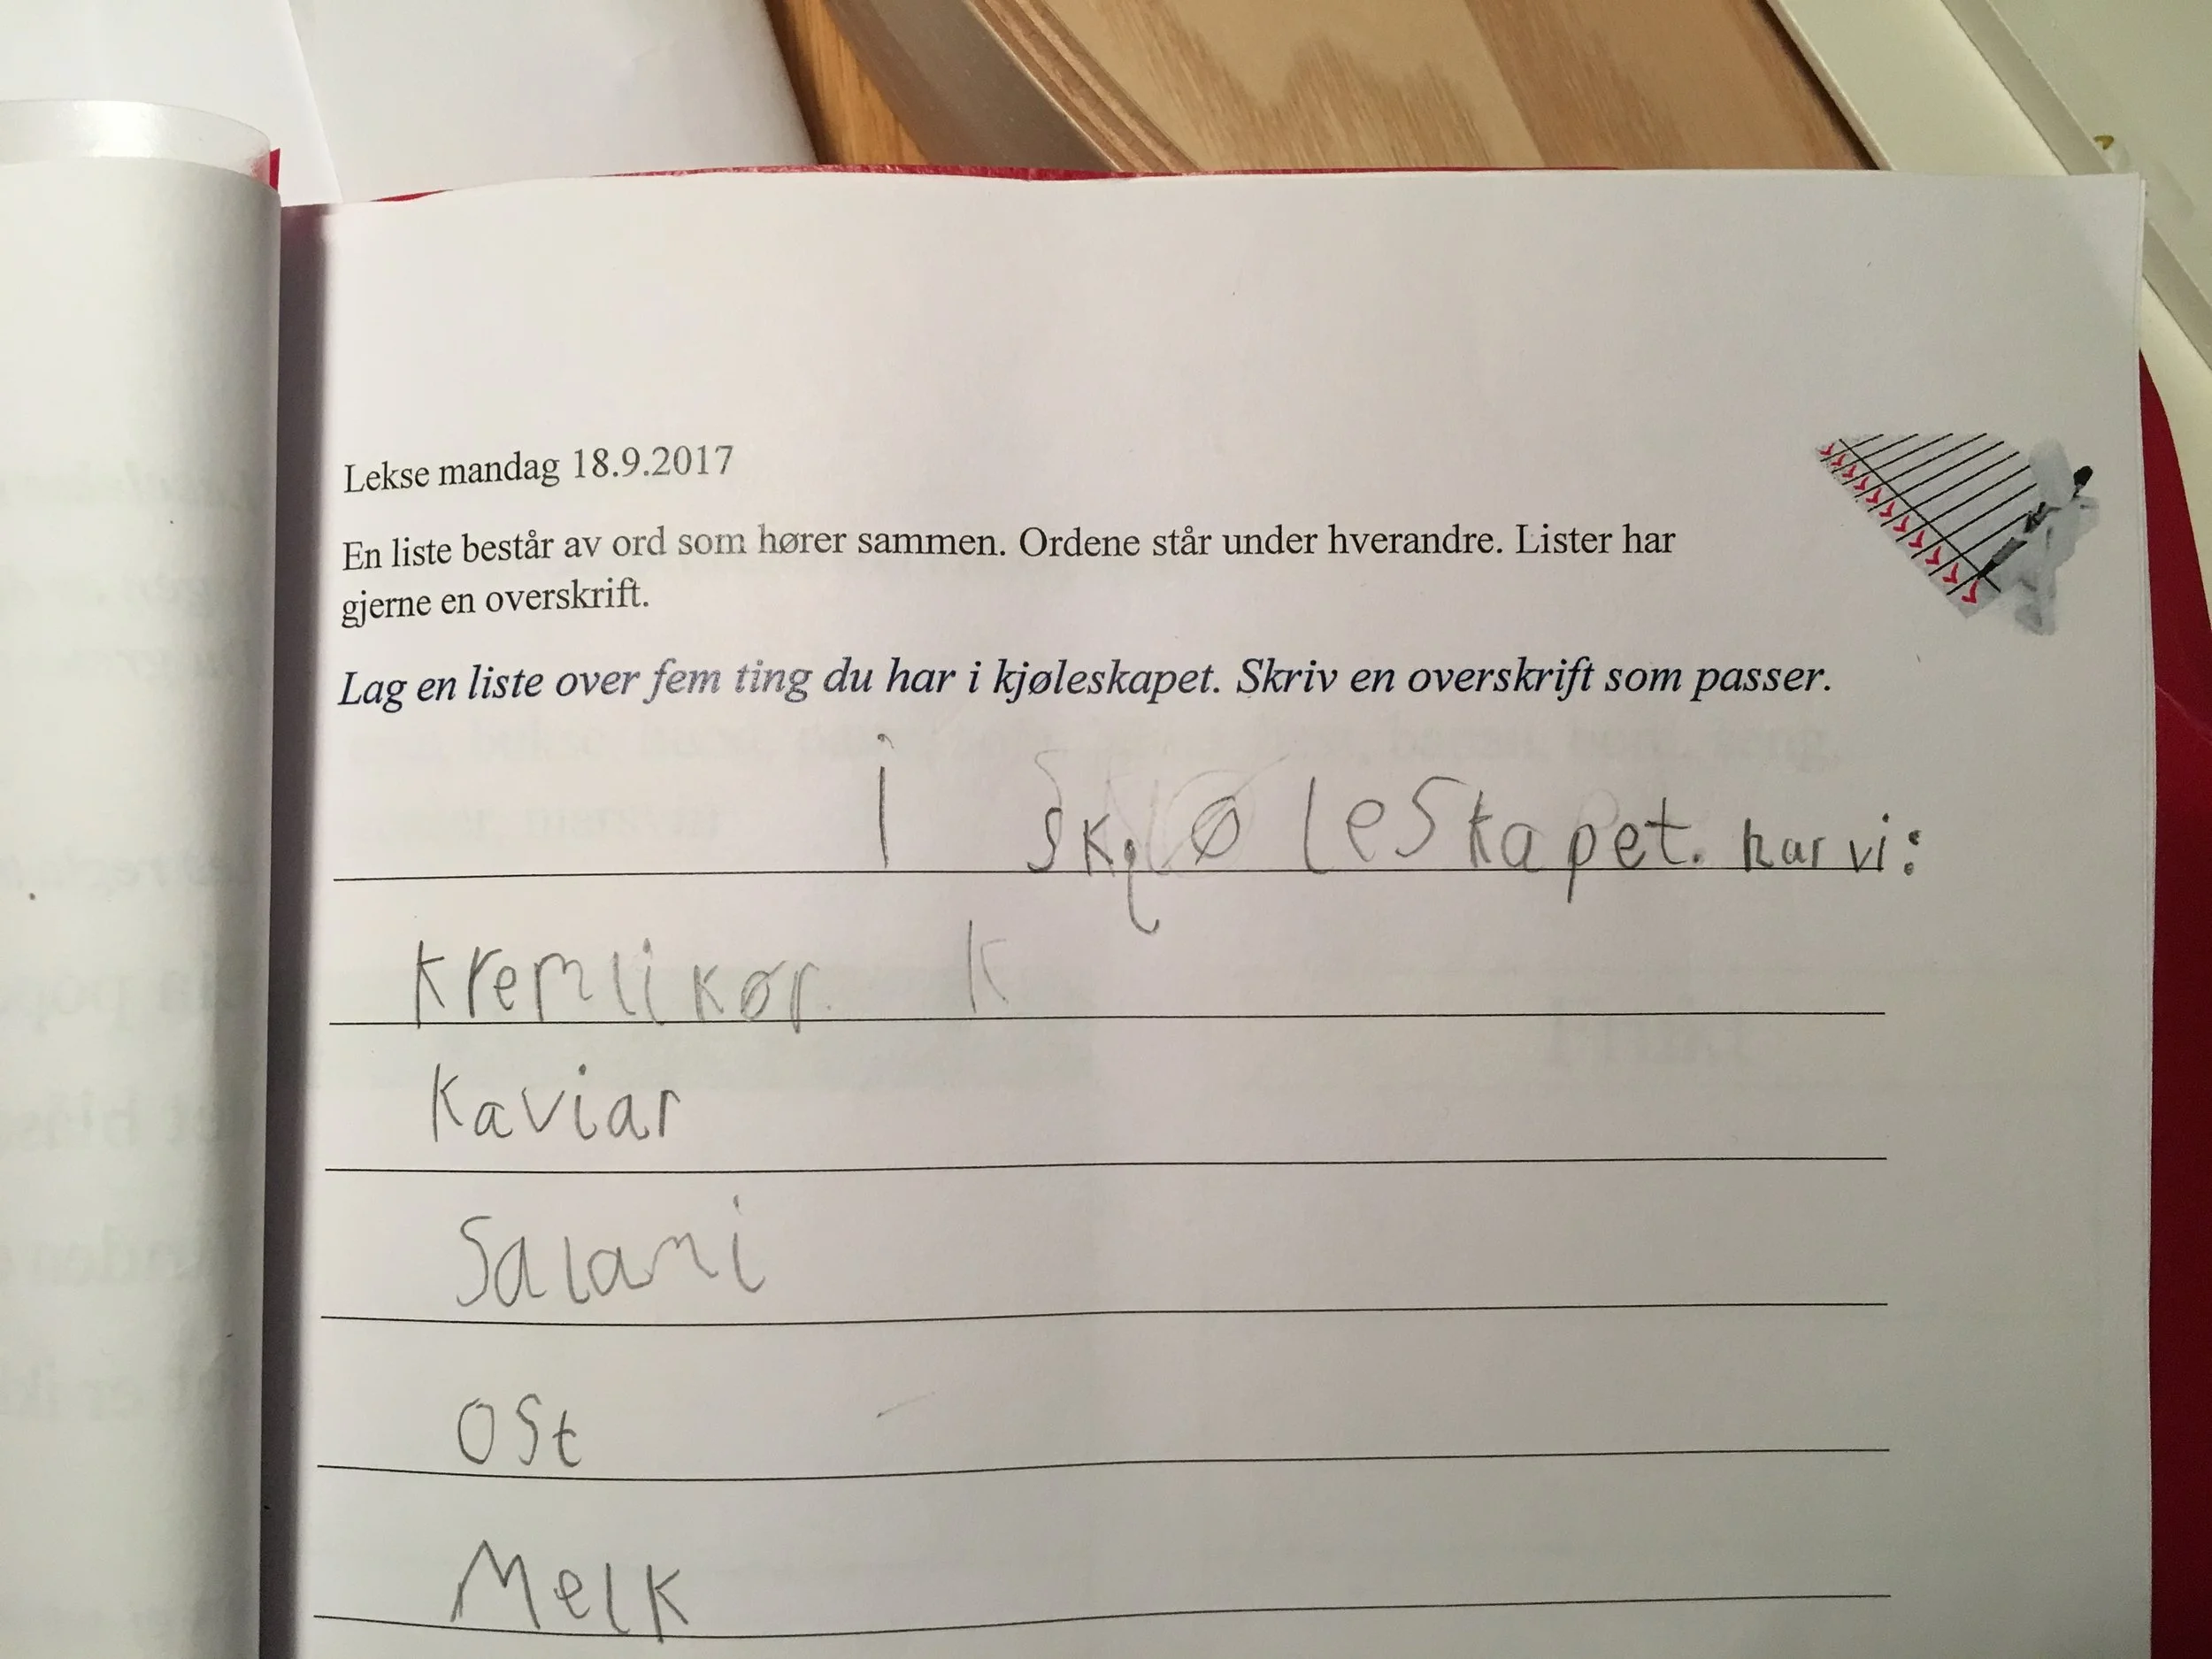 Lekse mandag 18.9.2017
En liste består av ord som hører sammen. Ordene står under hverandre. Lister har
gjerne en overskrift.
Lag en liste over fem ting du har i kjøleskapet. Skriv en overskrift som passer.
i skjøleskapet. har vi:
kremlikør. k
kaviar
Salami
Ost
Melk